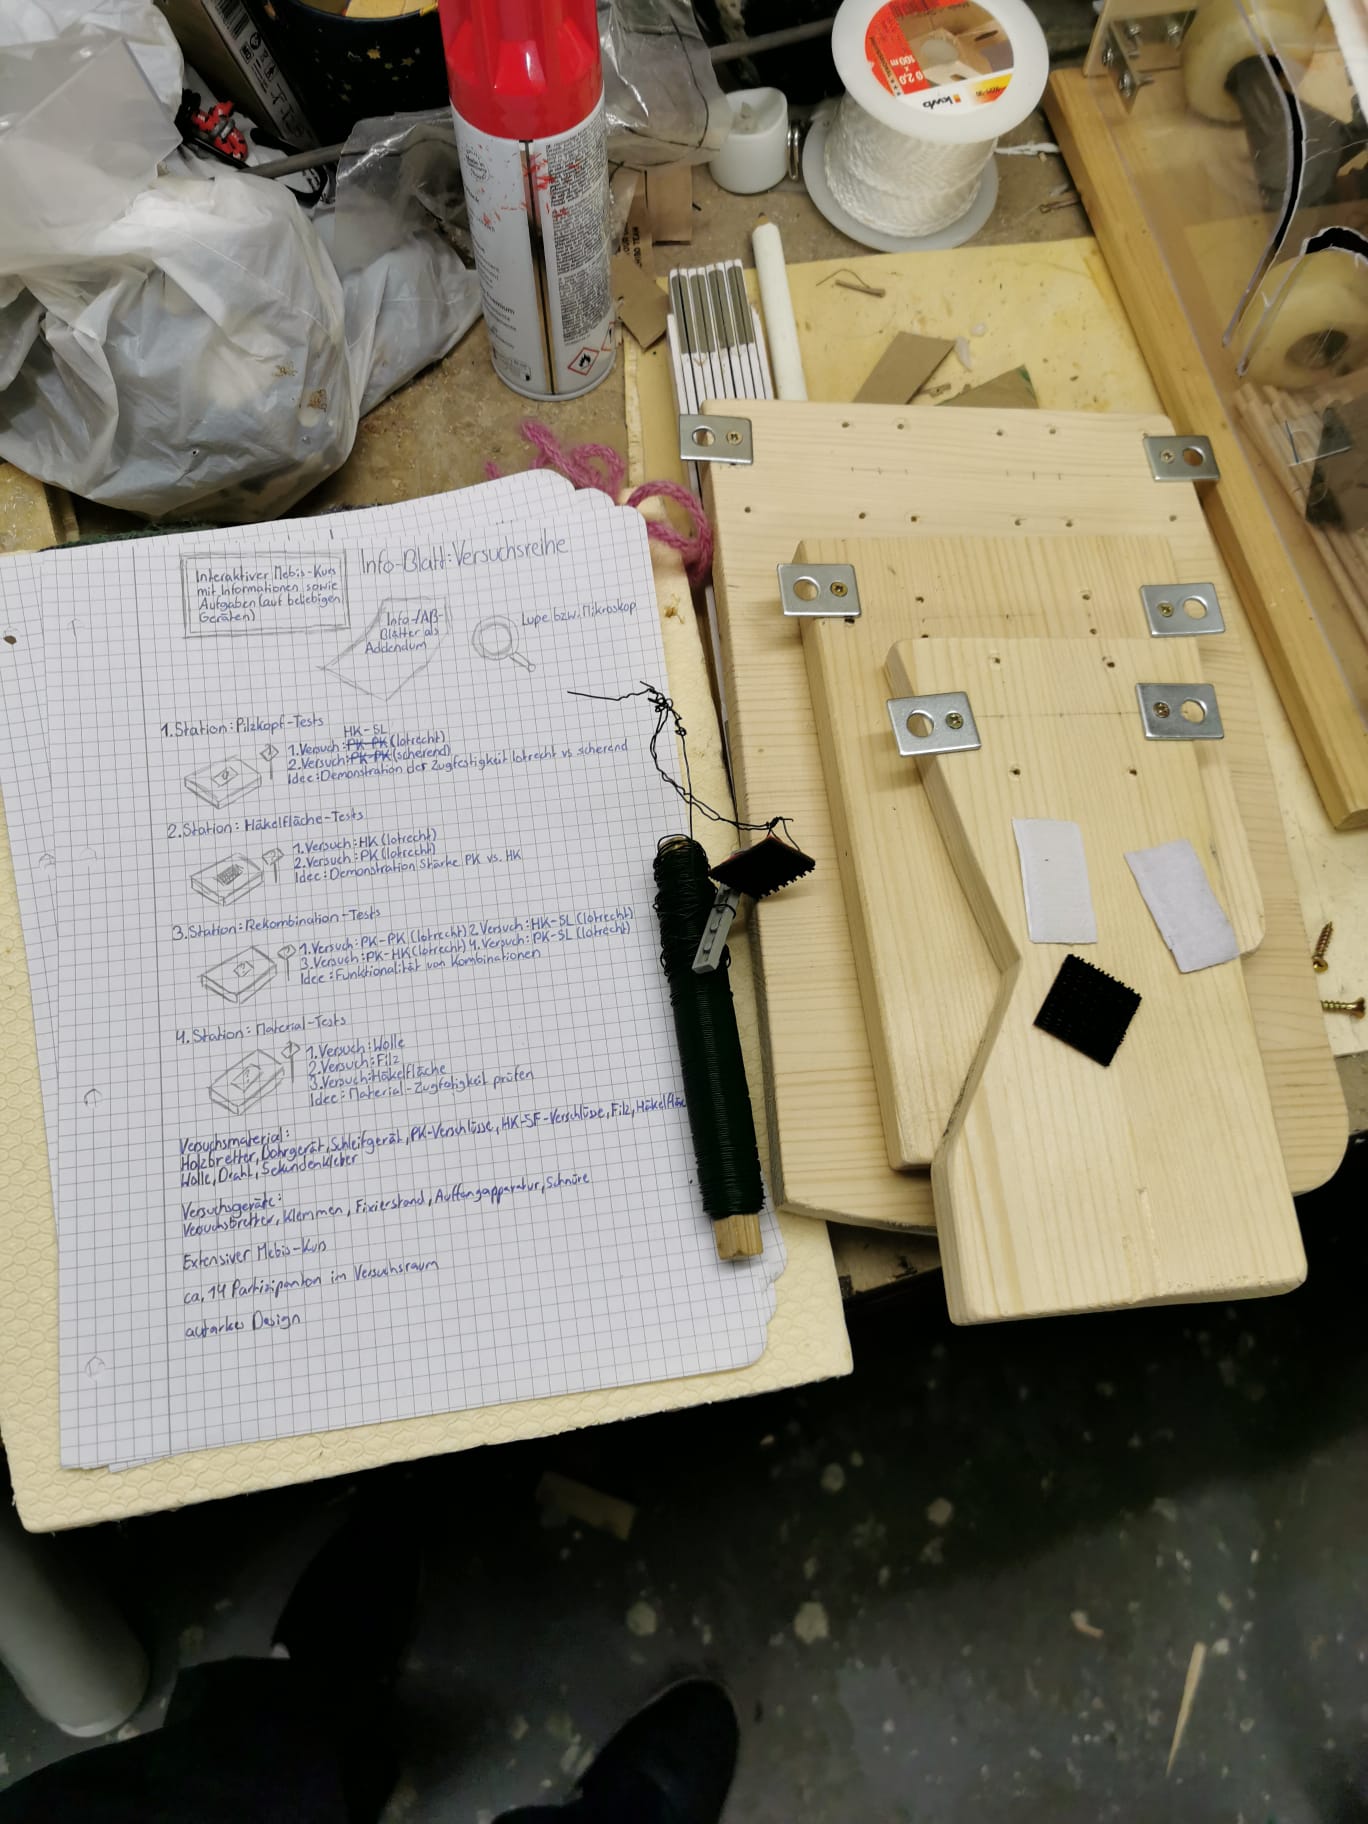 kwb
100 m
Interaktiver Mebis-Kurs
mit Informationen sowie
Aufgaben (auf beliebigen
Geräten)
Info-Blatt: Versuchsreihe
Info-/AB-
Blätter als
Addendum
Lupe bzw. Mikroskop
1. Station: Pilzkopf-Tests
HK-SL
1. Versuch: PK-PK (lotrecht)
2. Versuch: PK-PK (scherend)
Idee: Demonstration der Zugfestigkeit lotrecht vs scherend
2. Station: Häkelfläche-Tests
1. Versuch: HK (lotrecht)
2. Versuch: PK (lotrecht)
Idee: Demonstration Stärke PK vs. HK
3. Station: Rekombination-Tests
1. Versuch: PK-PK (lotrecht) 2. Versuch: HK-SL (lotrecht)
3. Versuch: PK-HK (lotrecht) 4. Versuch: PK-SL (lotrecht)
Idee: Funktionalität von Kombinationen
4. Station: Material-Tests
1. Versuch: Wolle
2. Versuch: Filz
3. Versuch: Häkelfläche
Idee: Material-Zugfätigkeit prüfen
Versuchsmaterial:
Holzbretter, Bohrgerät, Schleifgerät, PK-Verschlüsse, HK-SF-Verschlüsse, Filz, Häkelfläc
Wolle, Draht, Sekundenkleber
Versuchsgeräte:
Versuchsbretter, Klemmen, Fixierstand, Auffangapparatur, Schnüre
Extensiver Mebis-Kurs
ca. 14 Partizipanten im Versuchsraum
autarkes Design